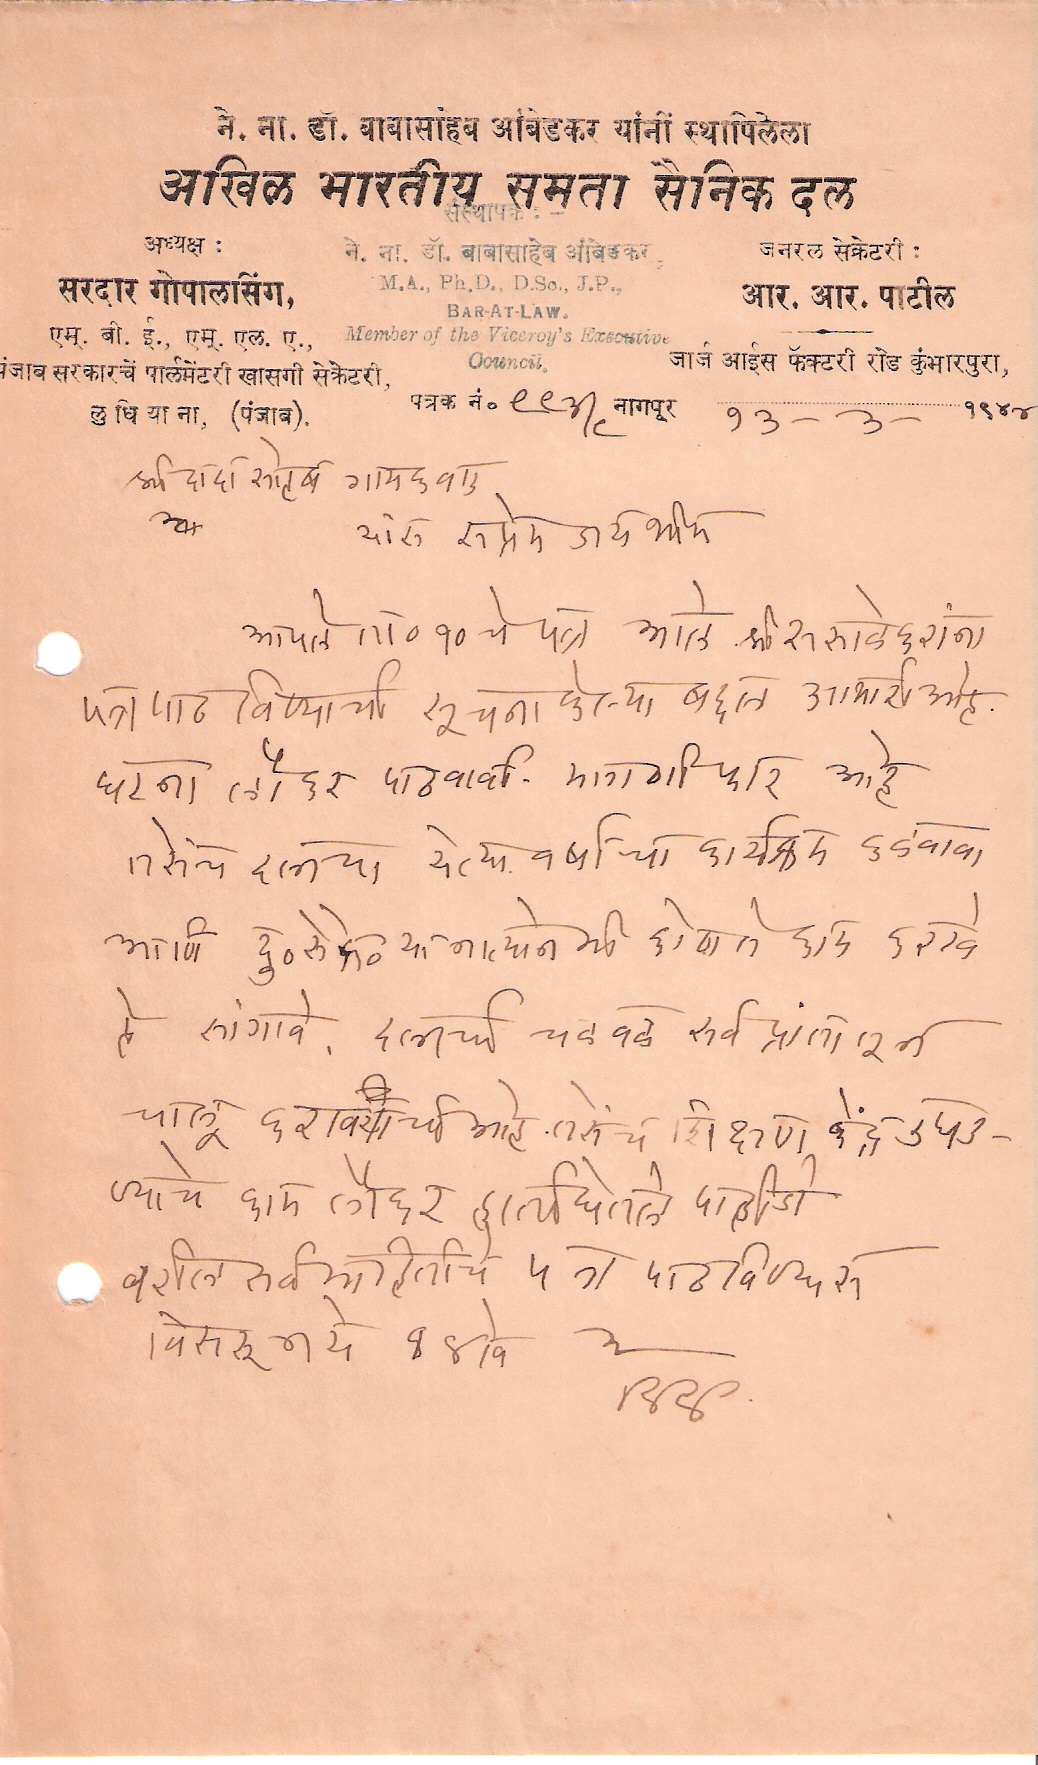 ने. ना. डॉ. बाबासाहेब आंबेडकर यांनीं स्थापिलेला
अखिल भारतीय समता सैनिक दल
संस्थापक : –
अध्यक्ष :
सरदार गोपालसिंग,
एम्. बी. ई., एम्. एल. ए.,
पंजाब सरकारचें पार्लमेंटरी खासगी सेक्रेटरी,
लु धि या ना, (पंजाब).
ने. ना. डॉ. बाबासाहेब आंबेडकर,
M.A., Ph.D., D.Sc., J.P.,
BAR-AT-LAW.
Member of the Viceroy's Executive
Council.
जनरल सेक्रेटरी :
आर. आर. पाटील
जार्ज आईस फॅक्टरी रोड कुंभारपुरा,
पत्रक नं० नागपूर १३ – ३ – १९४४
श्री दादासाहेब गायकवाड
यांस सप्रेम जय भीम
आपले ता० १० चे पत्र आले श्री
पत्र पाठविण्याची सूचना केल्या बद्दल आभारी आहे.
घटना लौकर पाठवावी. मागणी फार आहे
तसेच दलाचा येत्या वर्षाचा कार्यक्रम कळवावा
आणि यानात्याने मी कोणते काम करावे
ते सांगावे. दलाची चळवळ सर्व प्रांतातून
चालू आहे. तसेच शिक्षण केंद्र उघड-
ण्याचे काम लौकर हाती घेतले पाहिजे
वरील सर्व माहितीचे पत्र पाठविण्यास
विसरू नये